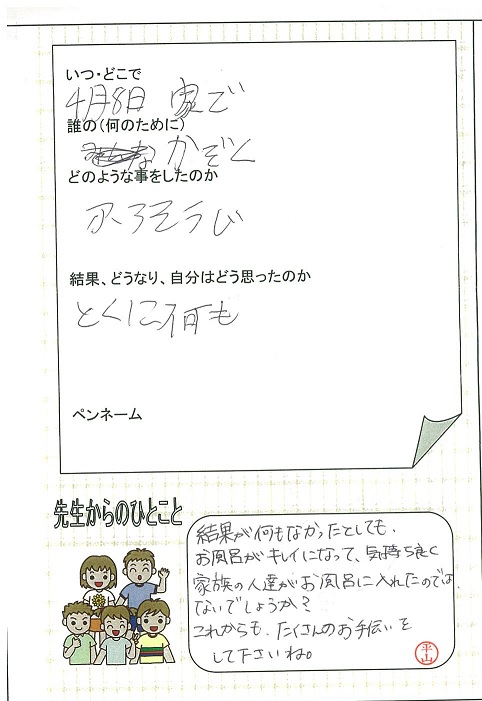 いつ・どこで
4月8日 家で
誰の(何のために)
かぞく
どのような事をしたのか
ふろそうじ
結果、どうなり、自分はどう思ったのか
とくに何も
ペンネーム
先生からのひとこと
結果が何もなかったとしても、
お風呂がキレイになって、気持ち良く
家族の人達がお風呂に入れたのでは
ないでしょうか?
これからも、たくさんのお手伝いを
して下さいね。
平山